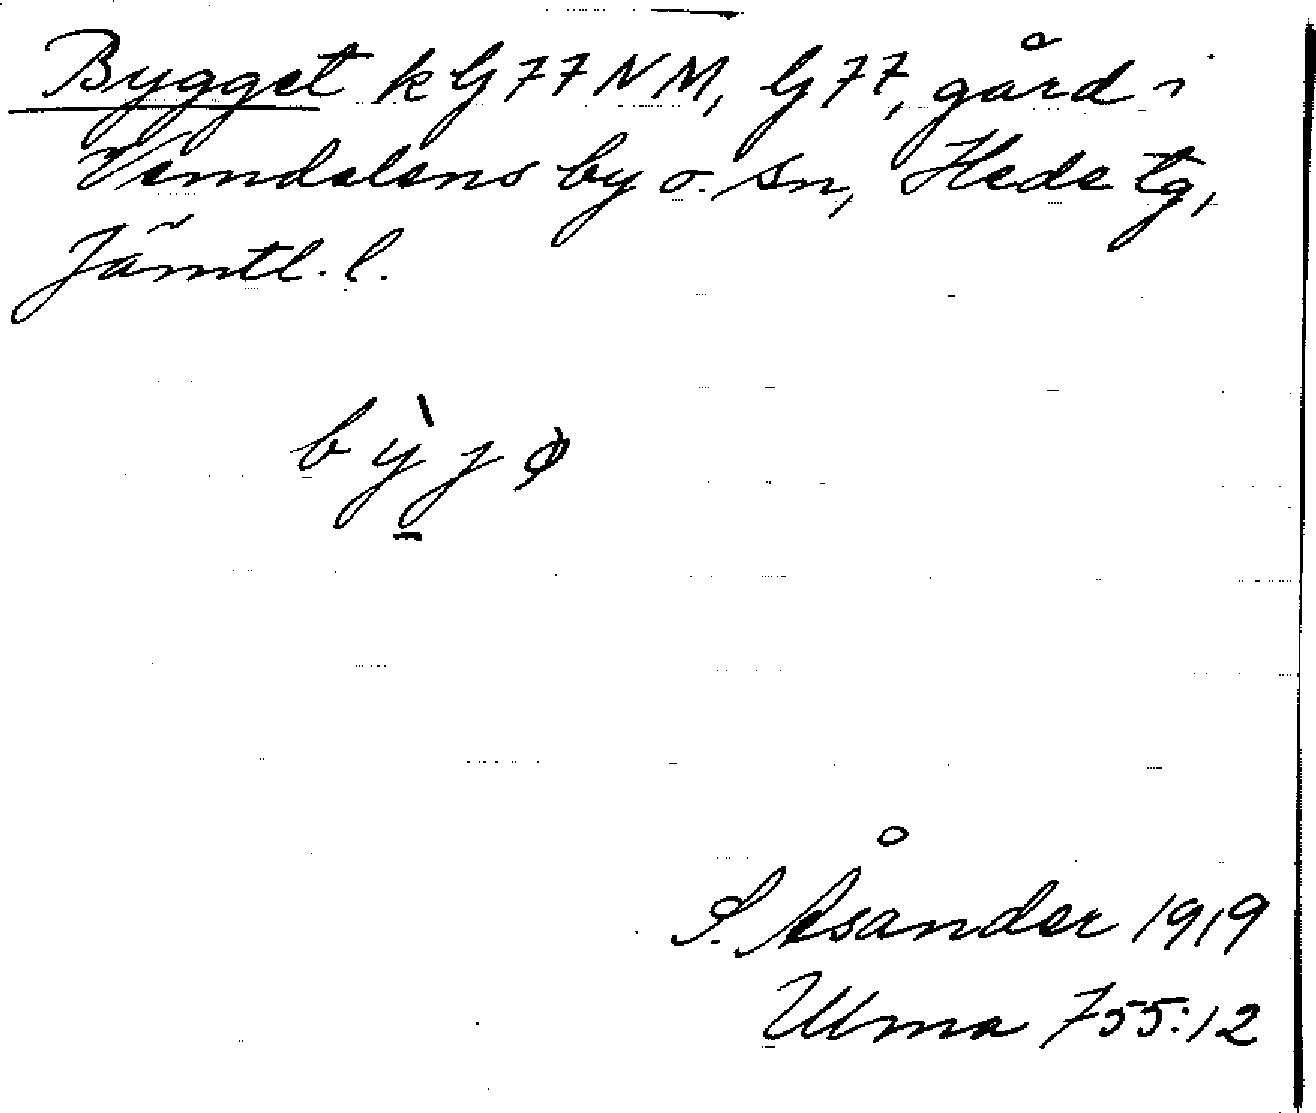 Bygget k G 77 NM, G 77, gård i
Vemdalens by o. sn, Hede tg,
Jämtl. l.
bỳjǝ
S. Åsander 1919
Ulma 755:12